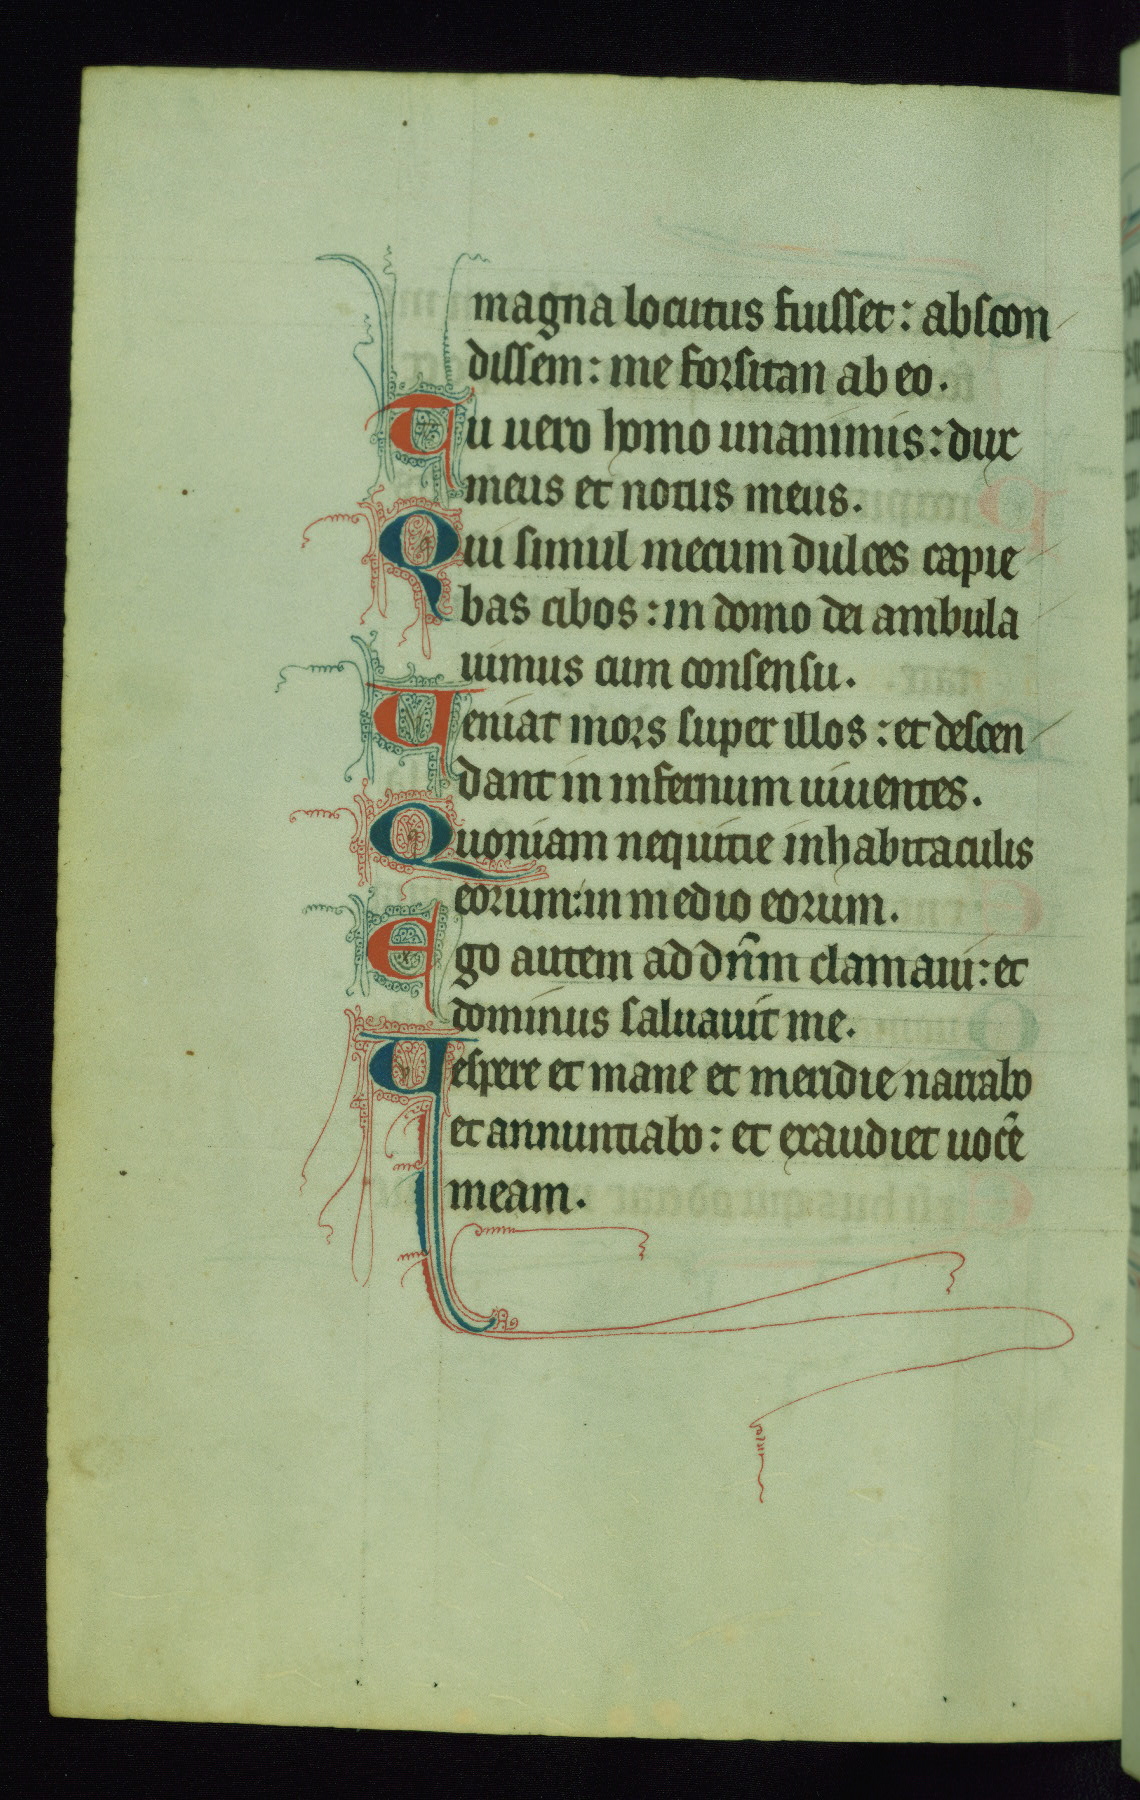 magna locutus fuisset: abscon
dissem: me forsitan ab eo.
Tu uero homo unanimis: dux
meus et notus meus.
Qui simul mecum dulces capie
bas cibos: in domo dei ambula
uimus cum consensu.
Ueniat mors super illos: et descen
dant in infernum uiuentes.
Quoniam nequitie in habitaculis
eorum: in medio eorum.
Ego autem ad dn̄m clamaui: et
dominus saluauit me.
Uespere et mane et meridie narrabo
et annuntiabo: et exaudiet uocē
meam.